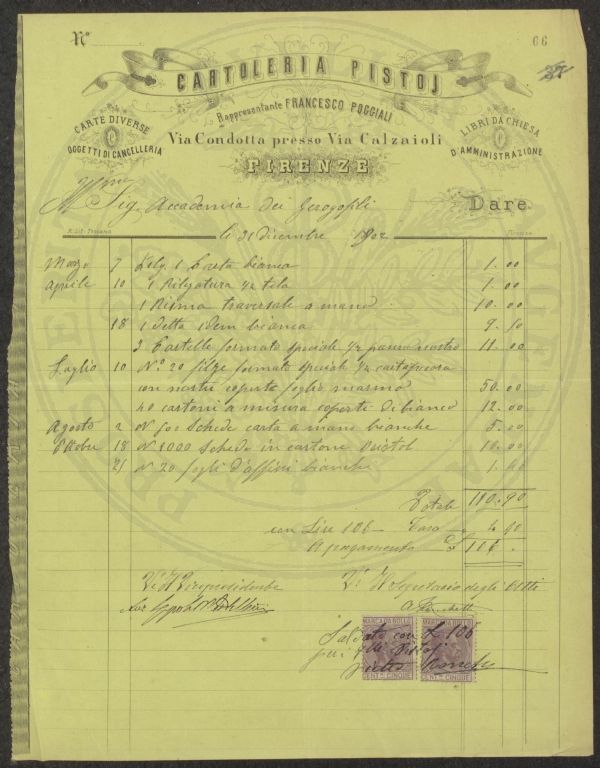 Nº 66
CARTOLERIA PISTOJ
Rappresentante FRANCESCO POGGIALI
CARTE DIVERSE
OGGETTI DI CANCELLERIA
LIBRI DA CHIESA
D'AMMINISTRAZIONE
Via Condotta presso Via Calzaioli
FIRENZE
Sig. Accademia dei Georgofili Dare
li 31 dicembre 1902
Marzo 7 1 Carta bianca 1.00
Aprile 10 1 Rilegatura 1/2 tela 1.00
1 Risma traversale a mano 10.00
18 1 detta idem bianca 9.50
2 Cartelle formato speciale 1/2 panno nostro 11.00
Luglio 10 Nº 20 filze formato speciale 1/2 cartapecora
con nastri coperta foglio marmo 50.00
40 cartoni a misura coperti di bianco 12.00
Agosto 2 Nº 500 Schede carta a mano bianche 5.00
Ottobre 18 Nº 1000 Schede in cartone Bristol 10.00
21 Nº 20 fogli d'affissi bianchi 1.40
Totale 110.90
con Lire 106 Taro 4.90
A pagamento £ 106.
Vº Il Vicepresidente Vº Il Segretario degli Atti
Saldato con £ 106
per Pistoj
MARCA DA BOLLO MARCA DA BOLLO
CENT.MI CINQUE CENT.MI CINQUE